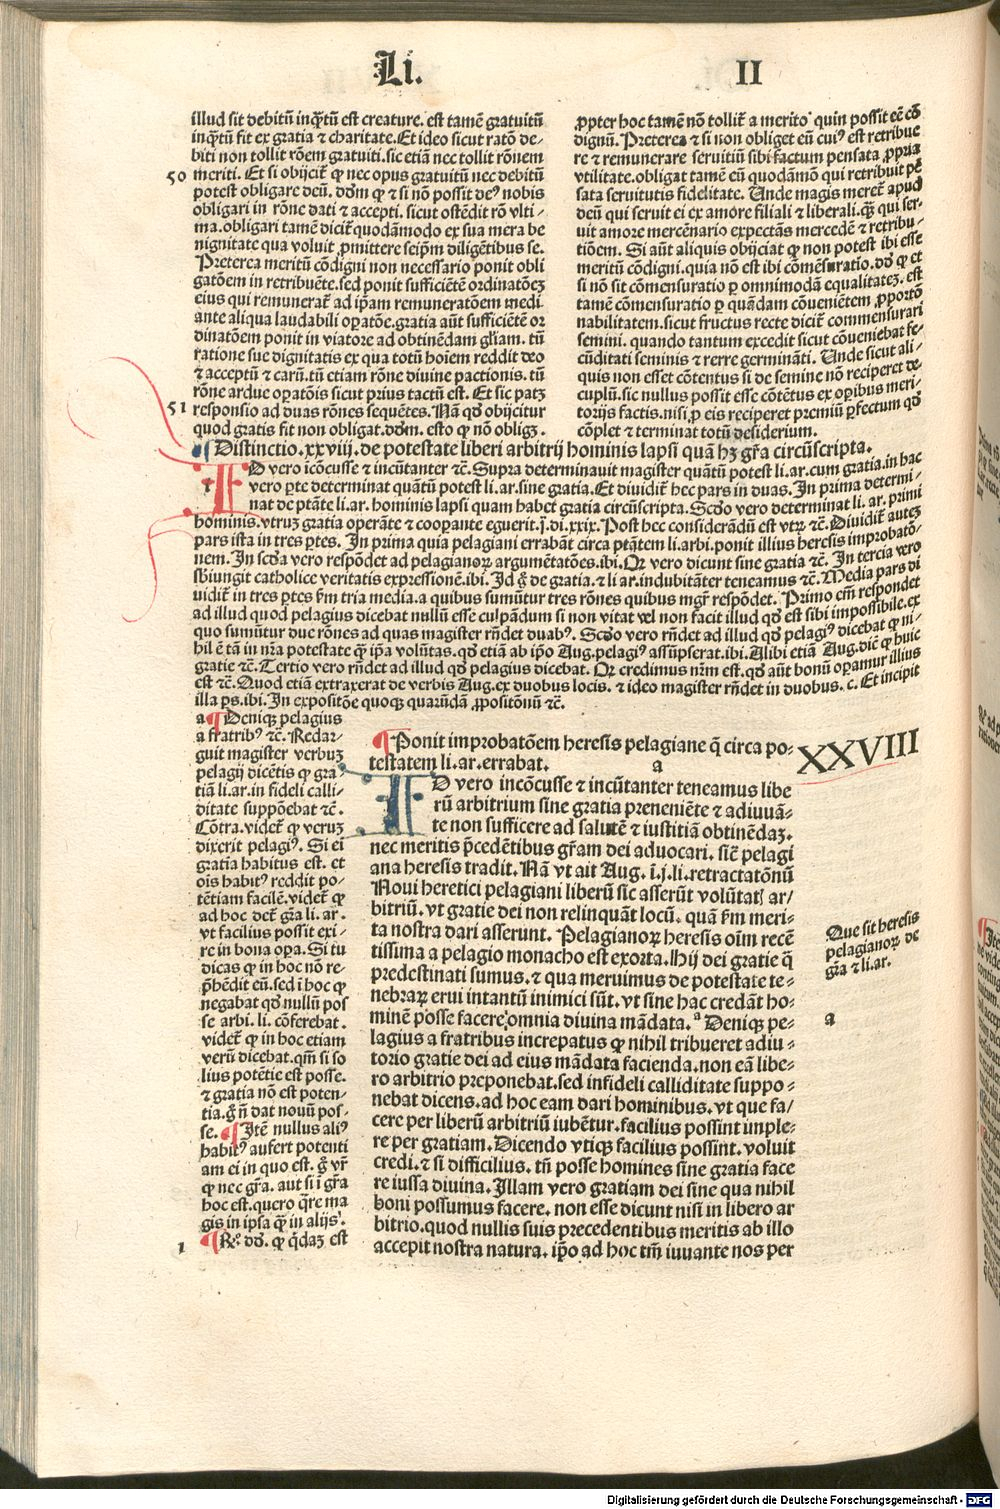 Li.
II
illud sit debitū inq̄tū est creature. est tamē gratuitū
inq̄tū fit ex gratia ⁊ charitate. Et ideo sicut ratō de-
biti non tollit rōem gratuiti. sic etiā nec tollit rōnem
50 meriti. Et si obijcit̄ ꝙ nec opus gratuitū nec debitū
potest obligare deū. dōm ꝙ ⁊ si nō possit deꝰ nobis
obligari in rōne dati ⁊ accepti. sicut ostēdit rō vlti-
ma. obligari tamē dicit̄ quodāmodo ex sua mera be
nignitate qua voluit ꝓmittere seip̄m diligētibus se.
Preterea meritū cōdigni non necessario ponit obli
gatōem in retribuēte. sed ponit sufficiētē ordinatōeꝫ
eius qui remunerat̄ ad ip̄am remuneratōem medi
ante aliqua laudabili oꝑatōe. gratia aūt sufficiētē or
dinatōem ponit in viatore ad obtinēdam gl̄iam. tū
ratione sue dignitatis ex qua totū hoīem reddit deo
⁊ acceptū ⁊ carū. tū etiam rōne diuine pactionis. tū
rōne ardue oꝑatōis sicut prius tactū est. Et sic patꝫ
51 responsio ad duas rōnes sequētes. Nā qd̄ obijcitur
quod gratis fit non obligat. dōm. esto ꝙ nō obligꝫ.
ꝓpter hoc tamē nō tollit̄ a merito quin possit eē cō
dignū. Preterea ⁊ si non obliget eū cuiꝰ est retribue
re ⁊ remunerare seruitiū sibi factum pensata ꝓpria
vtilitate. obligat tamē eū quodāmō qui retribuit pē
sata seruitutis fidelitate. Unde magis meret̄ apud
deū qui seruit ei ex amore filiali ⁊ liberali. q̄ꝫ qui ser-
uit amore mercēnario expectās mercedē ⁊ retribu-
tiōem. Si aūt aliquis obijciat ꝙ non potest ibi esse
meritū cōdigni. quia nō est ibi cōmēsuratio. dō ꝙ et
si nō sit cōmensuratio ꝑ omnimodā equalitateꝫ. est
tamē cōmensuratio ꝑ quādam cōueniētem ꝓportō
nabilitatem. sicut fructus recte dicit̄ commensurari
semini. quando tantum excedit sicut cōueniebat fe-
cūditati seminis ⁊ terre germināti. Unde sicut ali-
quis non esset cōtentus si de semine nō reciperet de-
cuplū. sic nullus possit esse cōtētus ex oꝑibus meri-
torijs factis. nisi ꝓ eis reciperet premiū ꝑfectum qd̄
cōplet ⁊ terminat totū desiderium.
Distinctio. xxviij. de potestate liberi arbitrij hominis lapsi quā hꝫ gr̄a circūscripta.
1 ID vero īcōcusse ⁊ incūtanter ⁊c̄. Supra determinauit magister quātū potest li. ar. cum gratia. in hac
vero ꝑte determinat quātū potest li. ar. sine gratia. Et diuidit̄ hec pars in duas. In prima determi-
nat de ptāte li. ar. hominis lapsi quam habet gratia circūscripta. Scd̄o vero determinat li. ar. primi
hominis. vtruꝫ gratia operāte ⁊ cooꝑante eguerit. j. di. xxix. Post hec considerādū est vtꝝ ⁊c̄. Diuidit̄ auteꝫ
pars ista in tres ꝑtes. In prima quia pelagiani errabāt circa ptātem li. arbi. ponit illius heresis improbatō-
nem. In scd̄a vero respōdet ad pelagianoꝝ argumētatōes. ibi. Qꝛ vero dicunt sine gratia ⁊c̄. In tercia vero
sb̄iungit catholice veritatis expressionē. ibi. Id g̊ de gratia. ⁊ li ar. indubitāter teneamus ⁊c̄. Media pars di
uidit̄ in tres ꝑtes ẜm tria media. a quibus sumūtur tres rōnes quibus mgr̄ respōdet. Primo em̄ respondet
ad illud quod pelagius dicebat nullū esse culpādum si non vitat vel non facit illud qd̄ est sibi impossibile. ex
quo sumūtur due rōnes ad quas magister rn̄det duabꝰ. Scd̄o vero rn̄det ad illud qd̄ pelagiꝰ dicebat ꝙ ni-
hil ē tā in nr̄a potestate ꝙ ip̄a volūtas. qd̄ etiā ab ip̄o Aug. pelagiꝰ assūpserat. ibi. Alibi etiā Aug. dic̄ ꝙ huic
gratie ⁊c̄. Tertio vero rn̄det ad illud qd̄ pelagius dicebat. Qꝛ credimus nr̄m est. qd̄ aūt bonū oꝑamur illius
est ⁊c̄. Quod etiā extraxerat de verbis Aug. ex duobus locis. ⁊ ideo magister rn̄det in duobus. c. Et incipit
illa ps. ibi. In expositōe quoqꝫ quarūdā ꝓpositōnū ⁊c̄.
a Deniqꝫ pelagius
a fratribꝰ ⁊c̄. Redar-
guit magister verbuꝫ
pelagij dicētis ꝙ gra-
tiā li. ar. in fideli calli-
ditate suppōebat ⁊c̄.
Cōtra. videt̄ ꝙ veruꝫ
dixerit pelagiꝰ. Si ei
gratia habitus est. et
oīs habitꝰ reddit po-
tētiam facilē. videt̄ ꝙ
ad hoc det̄ gr̄a li. ar.
vt facilius possit exi-
re in bona oꝑa. Si tu
dicas ꝙ in hoc nō re-
p̄hēdit eū. sed ī hoc ꝙ
negabat qd̄ nullū pos
se arbi. li. cōferebat.
videt̄ ꝙ in hoc etiam
verū dicebat. qm̄ si so
lius potētie est posse.
⁊ gratia nō est poten-
tia. g̊ n̄ dat nouū pos-
se. Itē nullus aliꝰ
habitꝰ aufert potenti
am ei in quo est. g̊ vr̄
ꝙ nec gr̄a. aut si ī gr̄a
hoc est. quero q̄re ma
gis in ipsa q̄ꝫ in alijsꝰ.
1 Rͦ. dd̄. ꝙ q̄daꝫ est
Ponit improbatōem heresis pelagiane q̄ circa po-
testatem li. ar. errabat.
a
ID vero incōcusse ⁊ incūtanter teneamus libe
rū arbitrium sine gratia preueniēte ⁊ adiuuā-
te non sufficere ad salutē ⁊ iustitiā obtinēdaꝫ.
nec meritis p̄cedētibus gr̄am dei aduocari. sic̄ pelagi
ana heresis tradit. Nā vt ait Aug. i. j. li. retractatōnū
Noui heretici pelagiani liberū sic asserūt volūtatꝭ ar-
bitriū. vt gratie dei non relinquāt locū. quā ẜm meri-
ta nostra dari asserunt. Pelagianoꝝ heresis oīm recē
tissima a pelagio monacho est exorta. Hij dei gratie q̄
predestinati sumus. ⁊ qua meruimus de potestate te-
nebraꝝ erui intantū inimici sūt. vt sine hac credāt ho-
minē posse facere omnia diuina mādata. a Deniqꝫ pe-
lagius a fratribus increpatus ꝙ nihil tribueret adiu-
torio gratie dei ad eius mādata facienda. non eā libe-
ro arbitrio preponebat. sed infideli calliditate suppo-
nebat dicens. ad hoc eam dari hominibus. vt que fa-
cere per liberū arbitriū iubētur. facilius possint imple-
re per gratiam. Dicendo vtiqꝫ facilius possint. voluit
credi. ⁊ si difficilius. tn̄ posse homines sine gratia face
re iussa diuina. Illam vero gratiam dei sine qua nihil
boni possumus facere. non esse dicunt nisi in libero ar
bitrio. quod nullis suis precedentibus meritis ab illo
accepit nostra natura. ip̄o ad hoc tm̄ iuuante nos per
XXVIII
Que sit heresis
pelagianoꝝ de
gr̄a ⁊ li. ar.
a
Digitalisierung gefördert durch die Deutsche Forschungsgemeinschaft - DFG